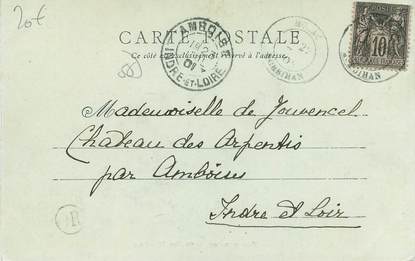 20€
CARTE POSTALE
Ce côté est exclusivement réservé à l'adresse.
AMBOISE
INDRE-ET-LOIRE
MORBIHAN
POSTE
10
Mademoiselle de Jouvencel
Château des Arpentis
par Amboise
Indre et Loir
B